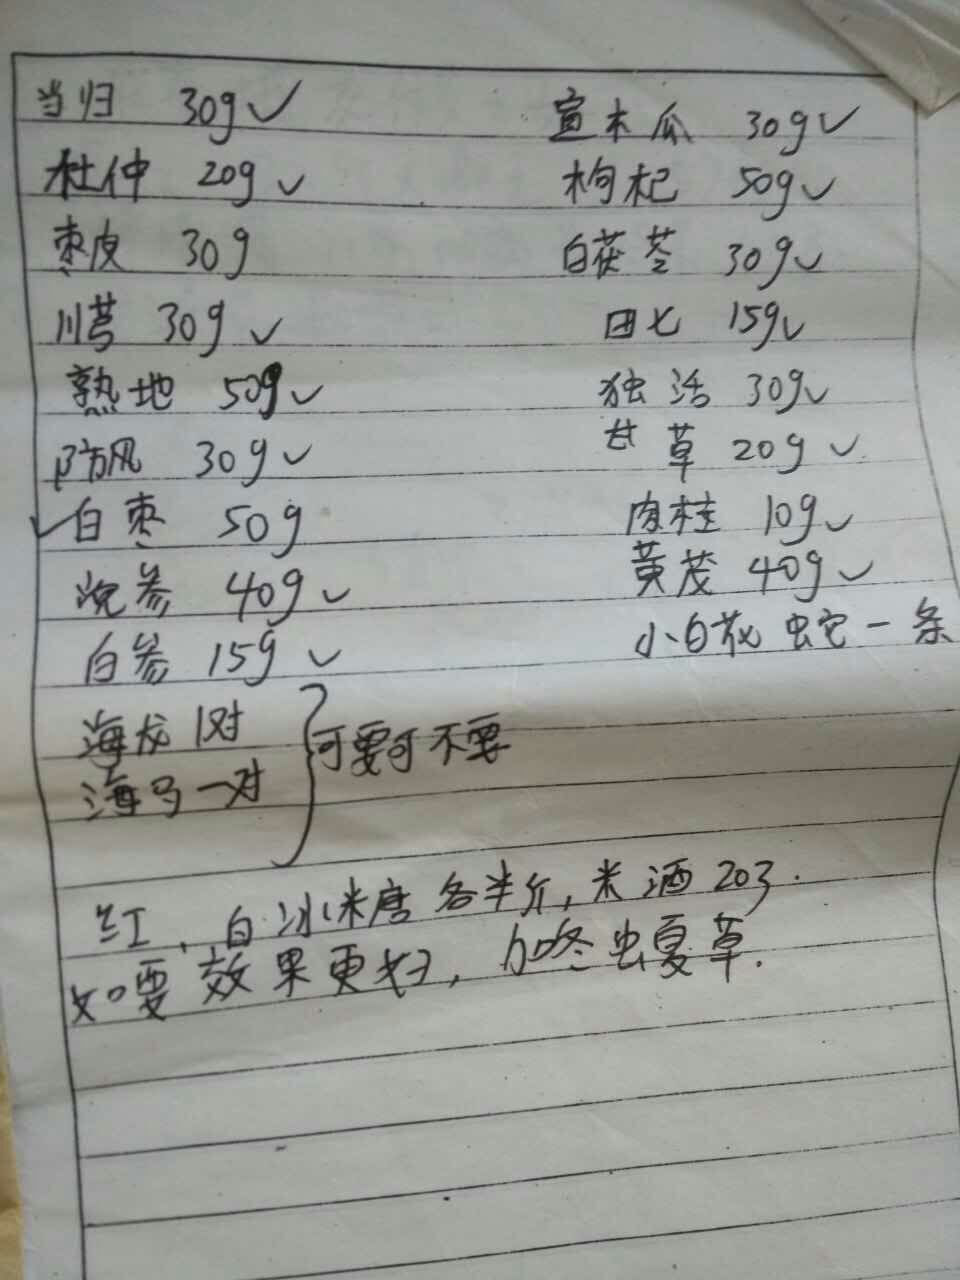 当归 30g✓ 宣木瓜 30g✓
杜仲 20g✓ 枸杞 50g✓
枣皮 30g 白茯苓 30g✓
川芎 30g✓ 田七 15g✓
熟地 50g✓ 独活 30g✓
防风 30g✓ 甘草 20g✓
✓白枣 50g 肉桂 10g✓
沅参 40g✓ 黄茂 40g✓
白参 15g✓ 小白花蛇一条
海龙1对
海马一对 } 可要可不要
红、白冰糖各半斤,米酒20斤.
如要效果更好,加冬虫夏草.